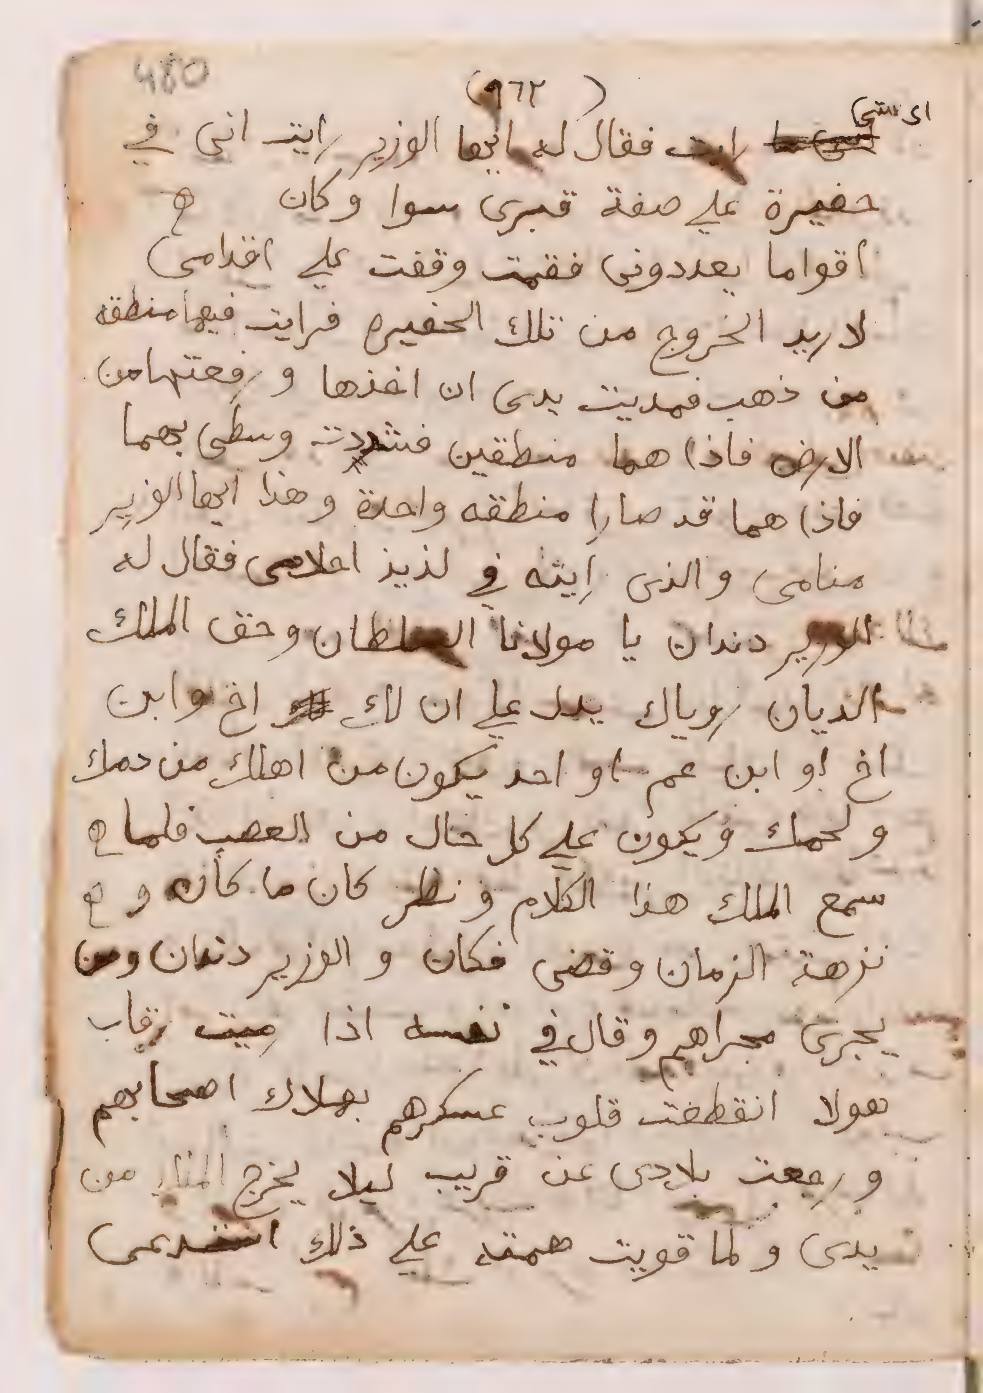 480
(٩٦٢)
اى شى
رايت فقال له ايها الوزير رايت انى في
حفيرة على صفة قبرى سوا وكان
اقواما يعددونى فقمت وقفت على اقدامى
لاريد الخروج من تلك الحفيره فرايت فيها منطقه
من ذهب فمديت يدى ان اخذها ورفعتها من
الارض فاذا هما منطقين فشددت وسطى بهما
فاذا هما قد صارا منطقه واحدة وهذا ايها الوزير
منامى والذى رايته في لذيذ احلامى فقال له
الوزير دندان يا مولانا السلطان وحق الملك
الديان روياك يدل على ان لك اخ وابن
اخ او ابن عم او احد يكون من اهلك من دمك
ولحمك ويكون على كل حال من العصب فلما
سمع الملك هذا الكلام ونظر كان ما كان و
نزهة الزمان وقضى فكان والوزير دندان ومن
يجرى مجراهم وقال في نفسه اذا رميت رقاب
هولا انقطعت قلوب عسكرهم بهلاك اصحابهم
ورجعت بلادى عن قريب ليلا يخرج من
يدى ولما قويت همته على ذلك استدعى